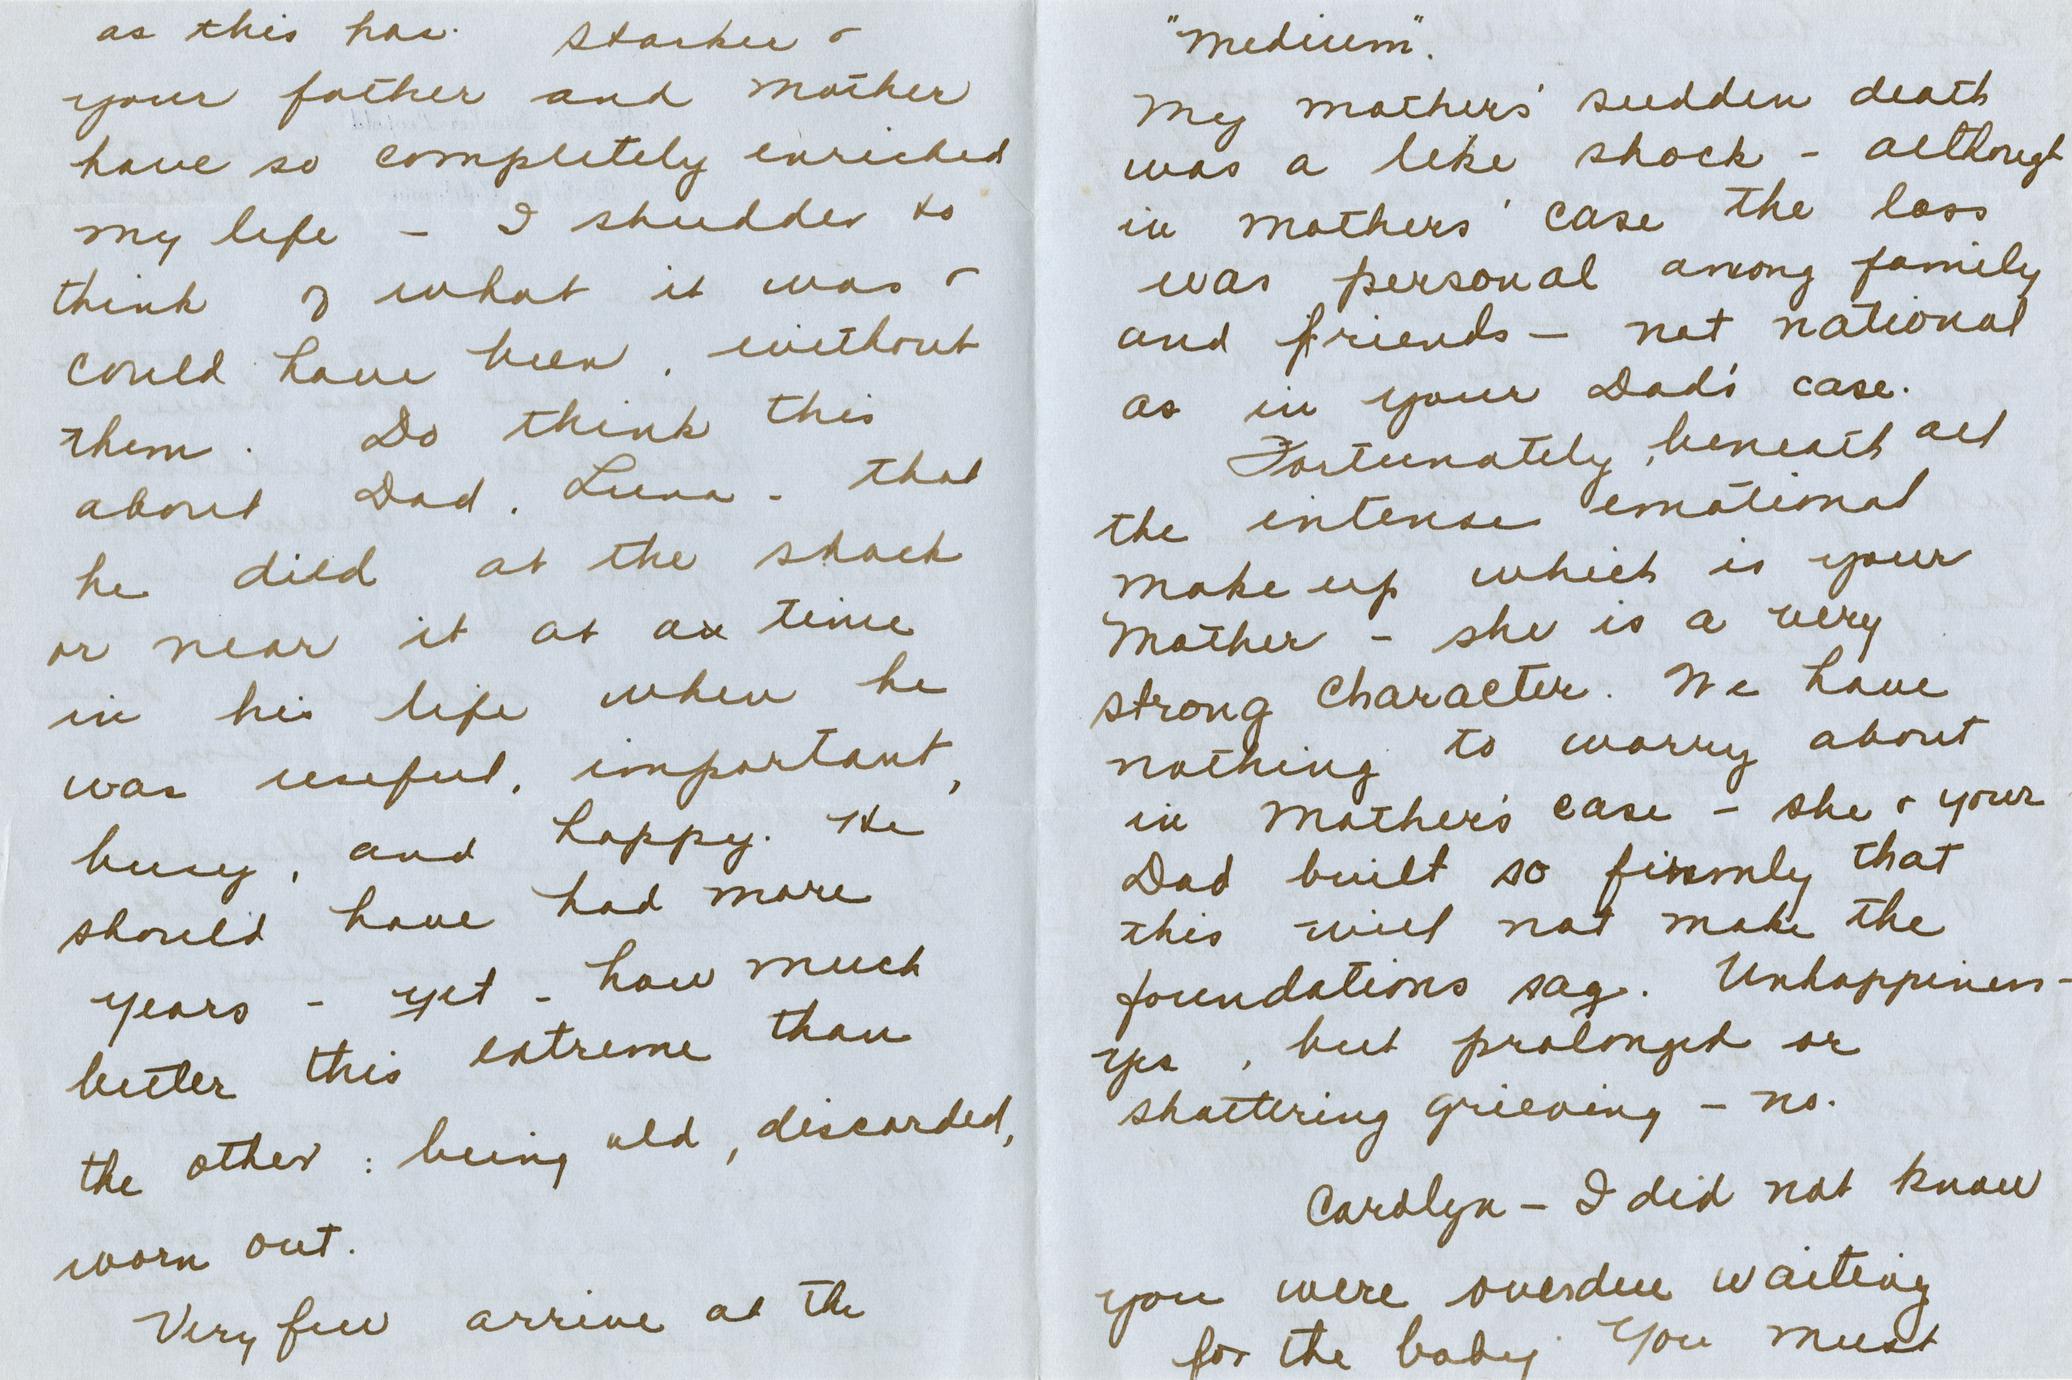 as this has. Starker &
your father and mother
have so completely enriched
my life – I shudder to
think of what it was &
could have been, without
them. Do think this
about Dad, Luna – that
he died at the shack
or near it at a time
in his life when he
was useful, important,
busy, and happy. He
should have had more
years – yet – how much
better this extreme than
the other: being old, discarded,
worn out.
Very few arrive at the
"Medium".
My mothers' sudden death
was a like shock – although
in mothers' case the loss
was personal among family
and friends – not national
as in your Dad's case.
Fortunately, beneath all
the intense emotional
make up which is your
Mother – she is a very
strong character. We have
nothing to worry about
in Mother's case – she & your
Dad built so firmly that
this will not make the
foundations sag. Unhappiness –
yes, but prolonged or
shattering grieving – no.
Carolyn – I did not know
you were overdue waiting
for the baby. You must